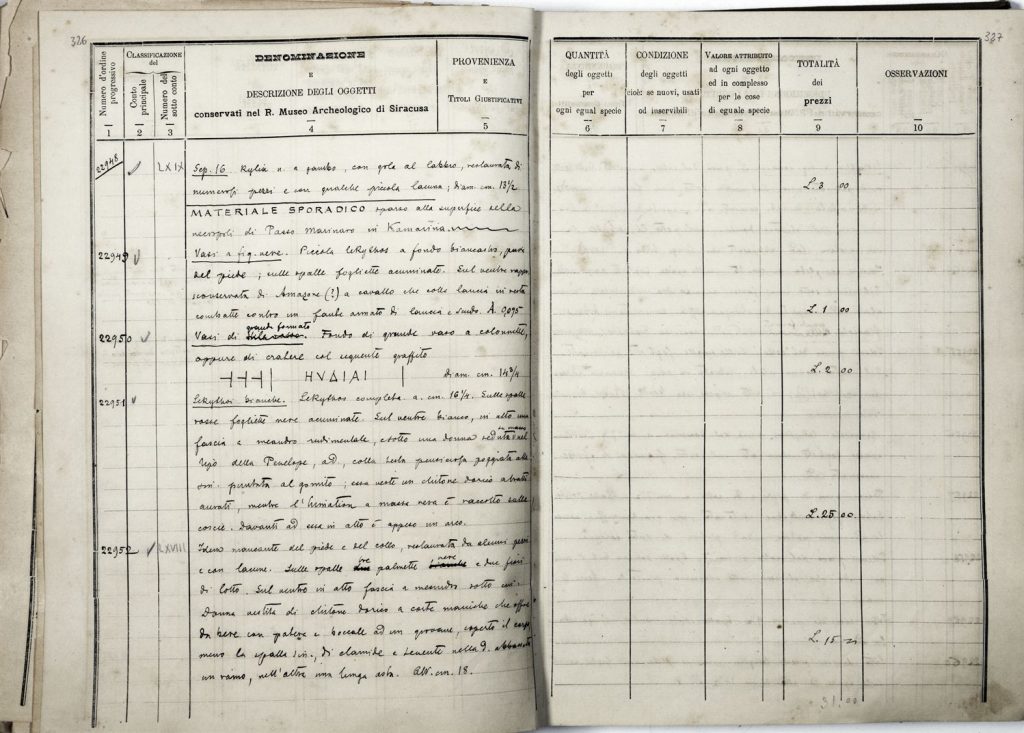 326
Numero d'ordine progressivo
CLASSIFICAZIONE del
Conto principale
Numero del sotto conto
DENOMINAZIONE
E
DESCRIZIONE DEGLI OGGETTI
conservati nel R. Museo Archeologico di Siracusa
PROVENIENZA
E
TITOLI GIUSTIFICATIVI
1 2 3 4 5
22948 LXIX Sep. 16 Kylix n. a gambo, con gola al labbro, restaurata di
numerosi pezzi e con qualche piccola lacuna; diam. cm. 13½
MATERIALE SPORADICO sparso alla superficie della
necropoli di Passo Marinaro in Kamarina.
22949 Vasi a fig. nere. Piccola lekythos a fondo biancastro, priva
del piede; sulle spalle fogliette acuminate. Sul ventre rappr.
sconservata di Amazone (?) a cavallo che colla lancia in resta
combatte contro un fante armato di lancia e scudo. A. 0,095
grande formato
22950 Vasi di. Fondo di grande vaso a colonnette,
oppure di cratere col seguente graffito
HVΔIAI | diam. cm. 14¾
22951 Lekythoi bianche. Lekythos completa a. cm. 16½. Sulle spalle
rosse fogliette nere acuminate. Sul ventre bianco, in alto una
fascia a meandro rudimentale, e sotto una donna seduta nel
tipo della Penelope, a d., colla testa pensierosa poggiata alla
sin. puntata al gomito; essa veste un chitone dorico a tratti
aurati, mentre l'himation a massa nera è raccolto sulle
coscie. Davanti ad essa in alto è appeso un arco.
22952 LXVIII Idem mancante del piede e del collo, restaurata da alcuni pezzi
e con lacune. Sulle spalle tre palmette nere e due fiori
di lotto. Sul ventre in alto fascia a meandro, sotto cui:
Donna vestita di chitone dorico a corte maniche che offre
da bere con patera e boccale ad un giovane, coperto il corpo
meno la spalla sin., di clamide e tenente nella d.
un ramo, nell'altra una lunga asta. Alt. cm. 18.
327
QUANTITÀ
degli oggetti
per
ogni egual specie
CONDIZIONE
degli oggetti
cioè: se nuovi, usati
od inservibili
VALORE ATTRIBUITO
ad ogni oggetto
ed in complesso
per le cose
di eguale specie
TOTALITÀ
dei
prezzi
OSSERVAZIONI
6 7 8 9 10
L. 3 00
L. 1 00
L. 2 00
L. 25 00
L. 15
31.00